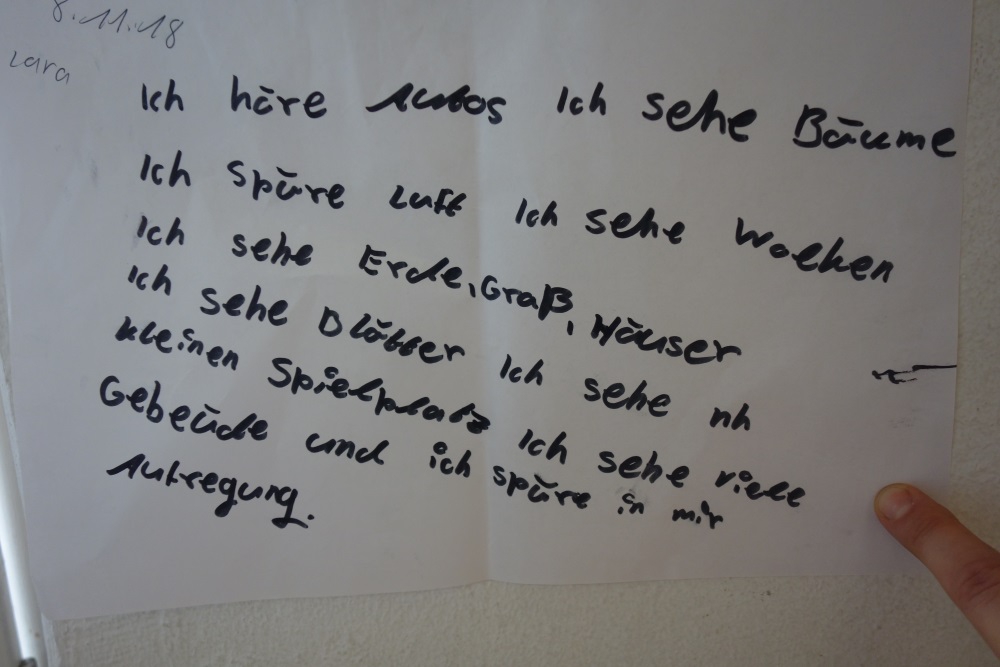 8.11.18
Lara
Ich höre Autos Ich sehe Bäume
Ich spüre Luft Ich sehe Wolken
Ich sehe Erde, Graß, Häuser
Ich sehe Blätter Ich sehe nh
kleinen Spielplatz Ich sehe viele
Gebeüde und ich spüre in mir
Aufregung.